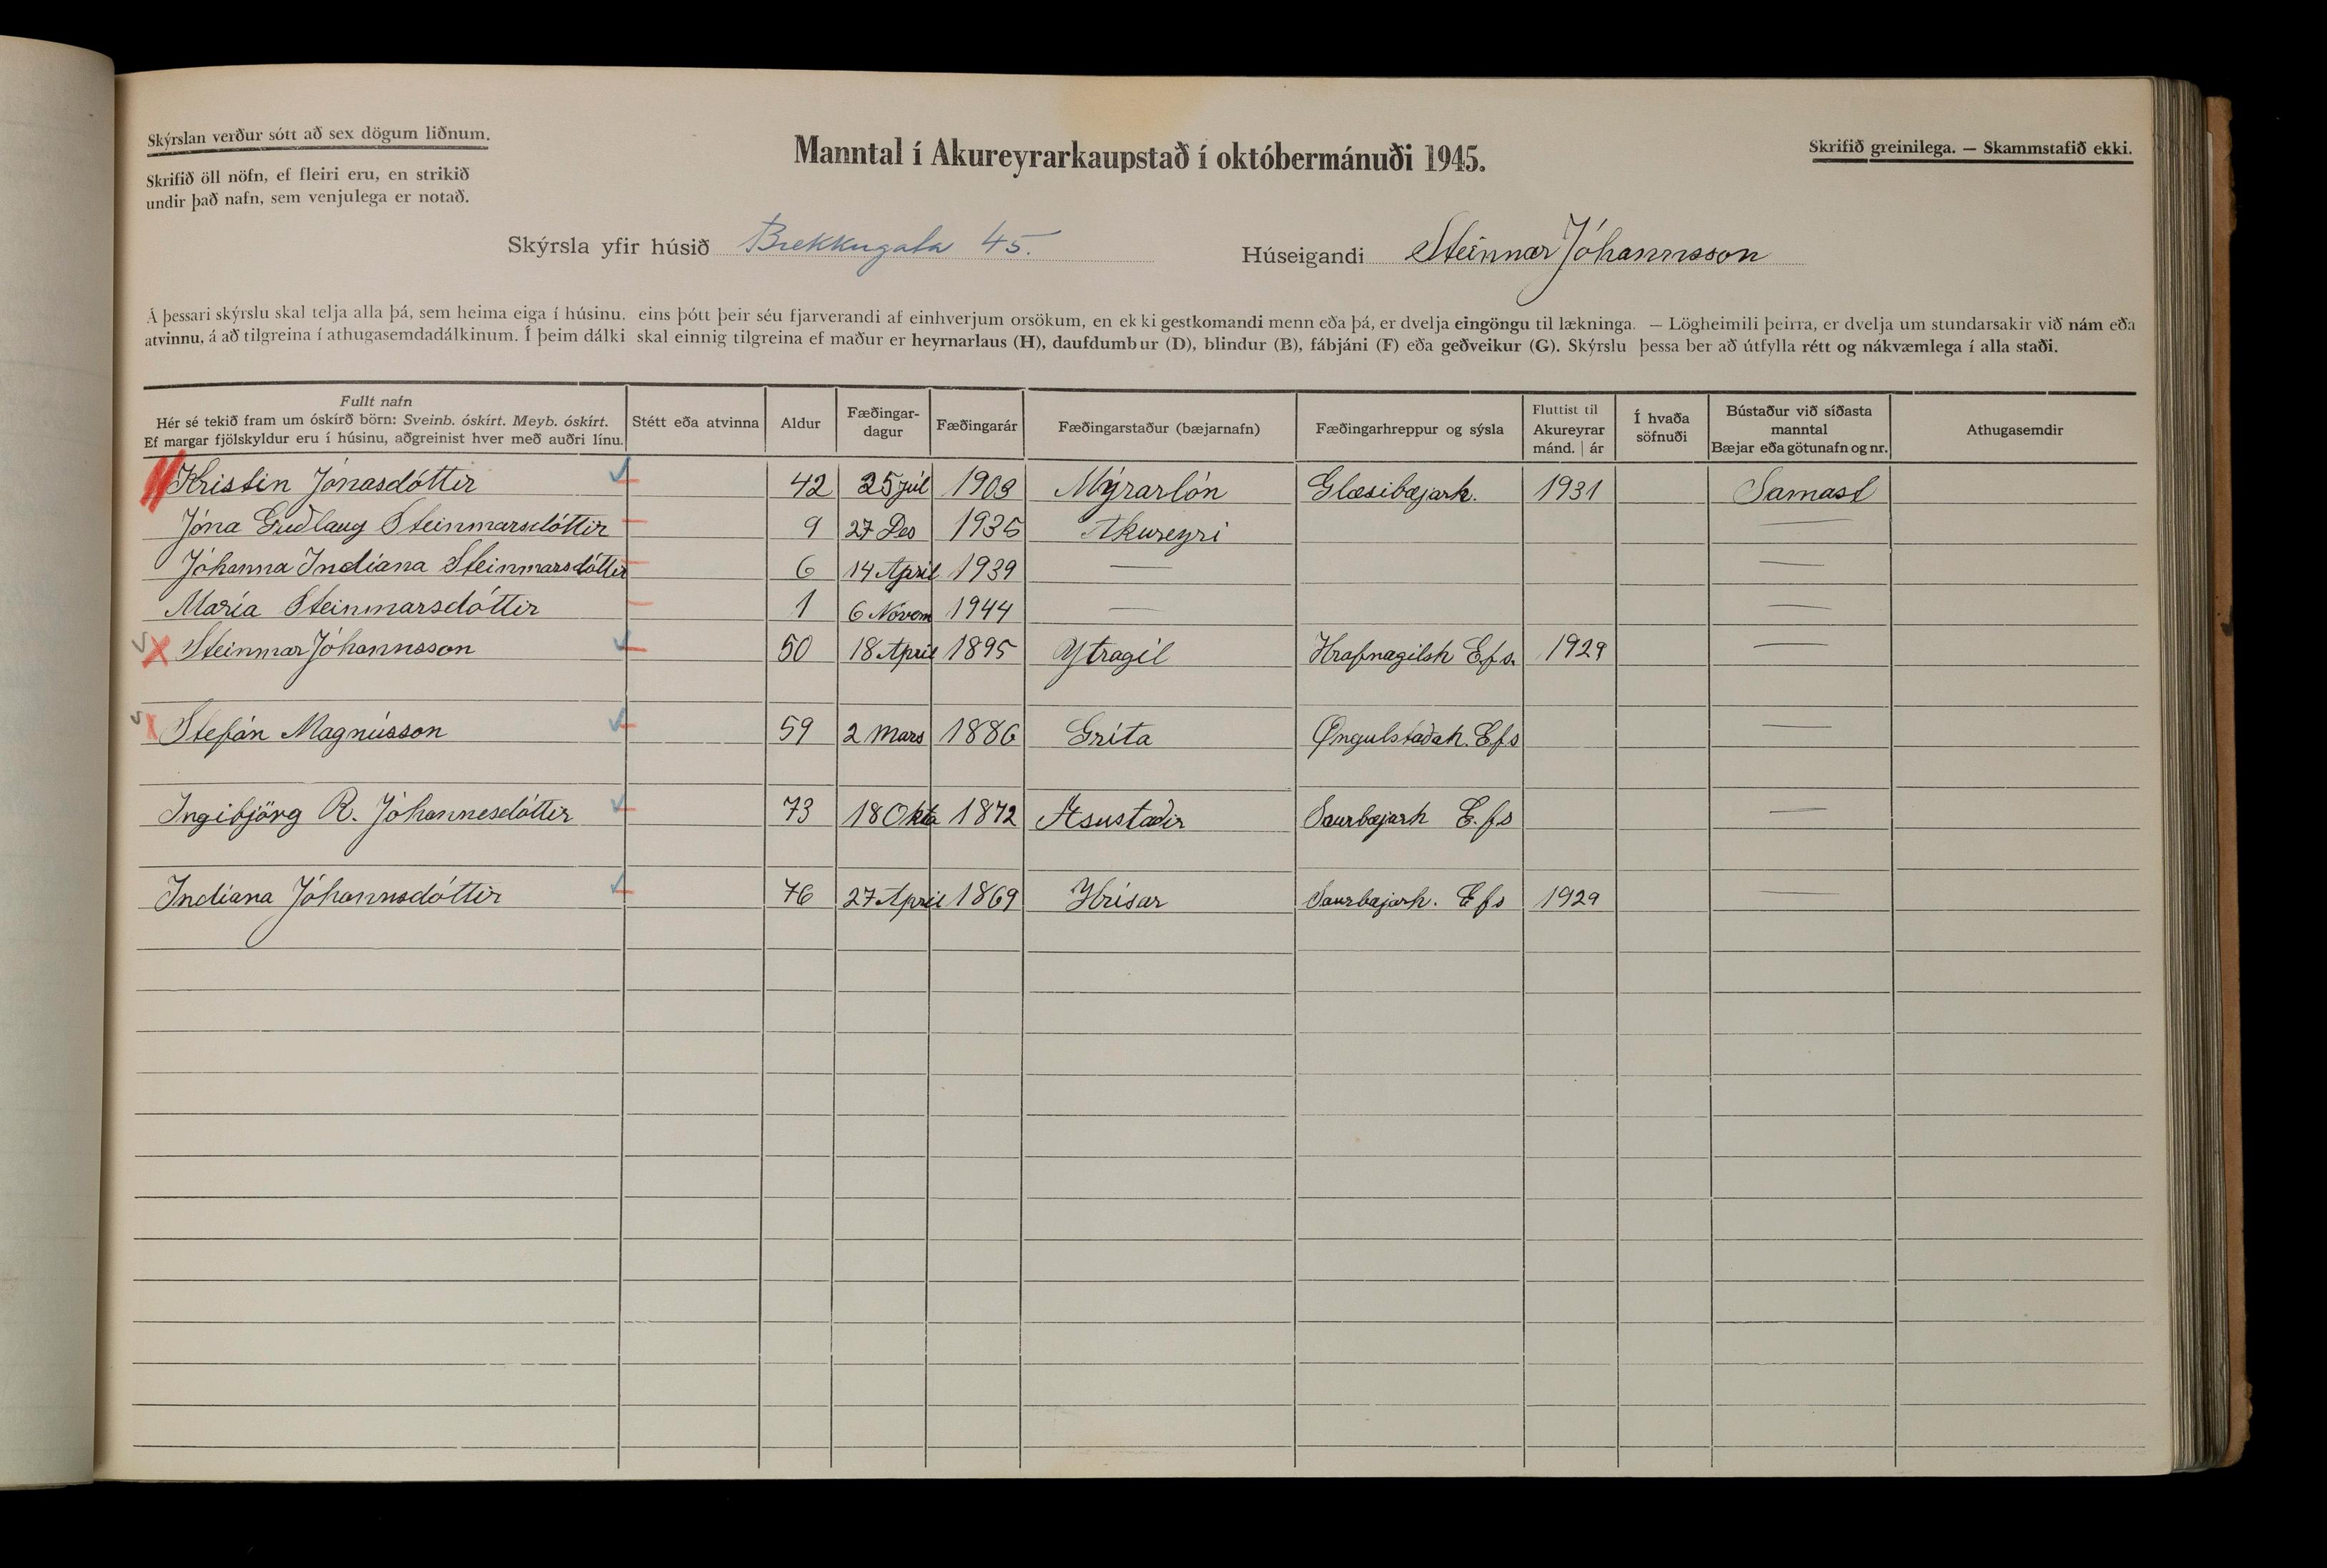 Skýrslan verður sótt að sex dögum liðnum.
Skrifið öll nöfn, ef fleiri eru, en strikið
undir það nafn, sem venjulega er notað.
Manntal í Akureyrarkaupstað í októbermánuði 1945.
Skrifið greinilega. — Skammstafið ekki.
Skýrsla yfir húsið Brekkugata 45.
Húseigandi Steinmar Jóhannsson
Á þessari skýrslu skal telja alla þá, sem heima eiga í húsinu, eins þótt þeir séu fjarverandi af einhverjum orsökum, en ekki gestkomandi menn eða þá, er dvelja eingöngu til lækninga. — Lögheimili þeirra, er dvelja um stundarsakir við nám eða
atvinnu, á að tilgreina í athugasemdadálkinum. Í þeim dálki skal einnig tilgreina ef maður er heyrnarlaus (H), daufdumbur (D), blindur (B), fábjáni (F) eða geðveikur (G). Skýrslu þessa ber að útfylla rétt og nákvæmlega í alla staði.
Fullt nafn
Hér sé tekið fram um óskírð börn: Sveinb. óskírt. Meyb. óskírt.
Ef margar fjölskyldur eru í húsinu, aðgreinist hver með auðri línu.
Stétt eða atvinna
Aldur
Fæðingar-
dagur
Fæðingarár
Fæðingarstaður (bæjarnafn)
Fæðingarhreppur og sýsla
Fluttist til
Akureyrar
mánd. | ár
Í hvaða
söfnuði
Bústaður við síðasta
manntal
Bæjar eða götunafn og nr.
Athugasemdir
Kristín Jónasdóttir 42 25 júl 1903 Mýrarlón Glæsibæjarh. 1931 Samast
Jóna Guðlaug Steinmarsdóttir 9 27 Des 1935 Akureyri —
Jóhanna Indíana Steinmarsdóttir 6 14 Apríl 1939 — —
María Steinmarsdóttir 1 6 Nóvem 1944 — —
Steinmar Jóhannsson 50 18 Apríl 1895 Ytragil Hrafnagilsh Efs. 1929 —
Stefán Magnússon 59 2 Mars 1886 Gríta Öngulstaðah. Efs —
Ingibjörg R. Jóhannesdóttir 73 18 Okto 1872 Asustaðir Saurbæjarh E.fs —
Indíana Jóhannsdóttir 76 27 Apríl 1869 Hrísar Saurbæjarh. Efs 1929 —